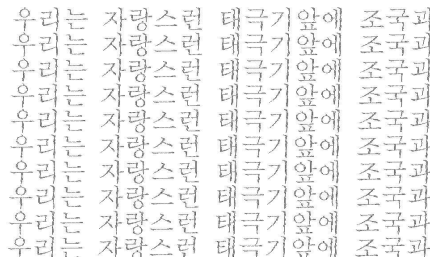 우리는 자랑스런 태극기 앞에 조국과
우리는 자랑스런 태극기 앞에 조국과
우리는 자랑스런 태극기 앞에 조국과
우리는 자랑스런 태극기 앞에 조국과
우리는 자랑스런 태극기 앞에 조국과
우리는 자랑스런 태극기 앞에 조국과
우리는 자랑스런 태극기 앞에 조국과
우리는 자랑스런 태극기 앞에 조국과
우리는 자랑스런 태극기 앞에 조국과
우리는 자랑스런 태극기 앞에 조국과